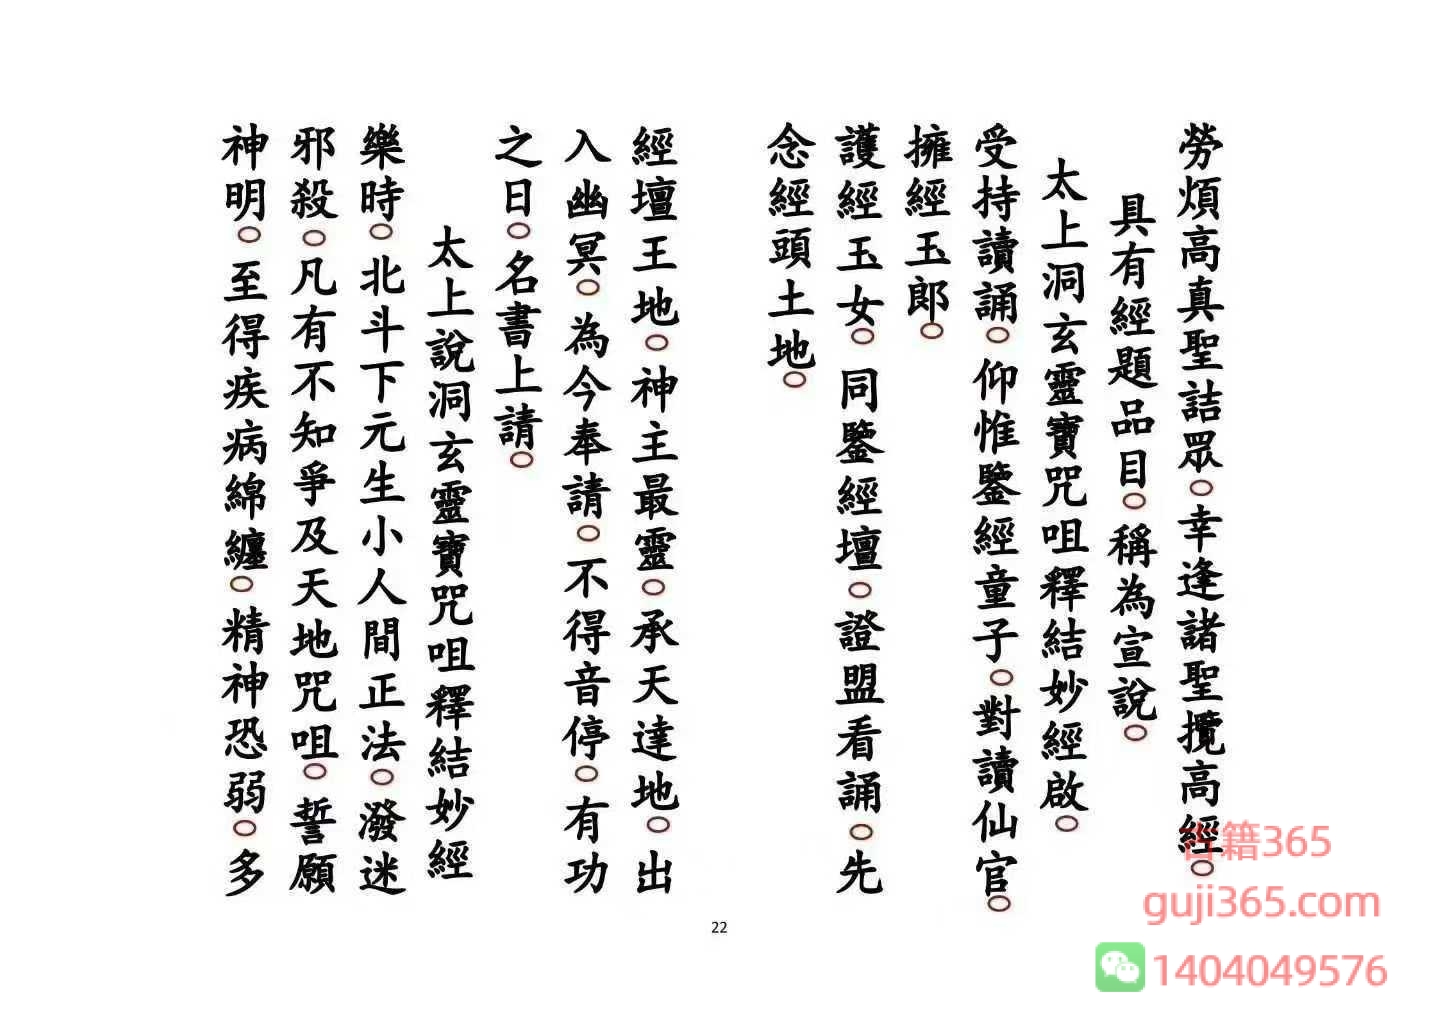 勞煩高真聖誥眾○幸逢諸聖攬高經○
具有經題品目○稱為宣說○
太上洞玄靈寶咒咀釋結妙經啟○
受持讀誦○仰惟鑒經童子○對讀仙官○
擁經玉郎○
護經玉女○同鑒經壇○證盟看誦○先
念經頭土地○
經壇王地○神主最靈○承天達地○出
入幽冥○為今奉請○不得音停○有功
之日○名書上請○
太上說洞玄靈寶咒咀釋結妙經
樂時○北斗下元生小人間正法○潑迷
邪殺○凡有不知爭及天地咒咀○誓願
神明○至得疾病綿纏○精神恐弱○多
22
古籍365
guji365.com
1404049576